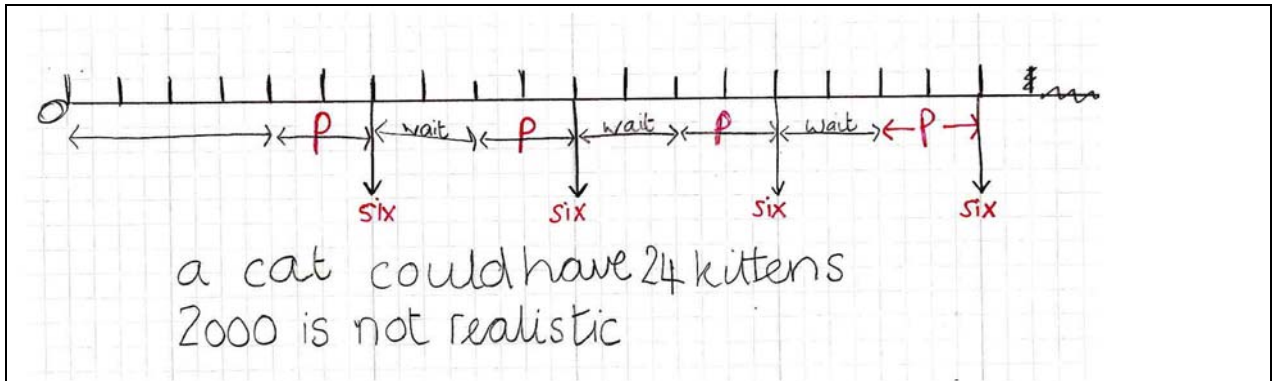 0
P wait P wait P wait P
six six six six
a cat could have 24 kittens
2000 is not realistic